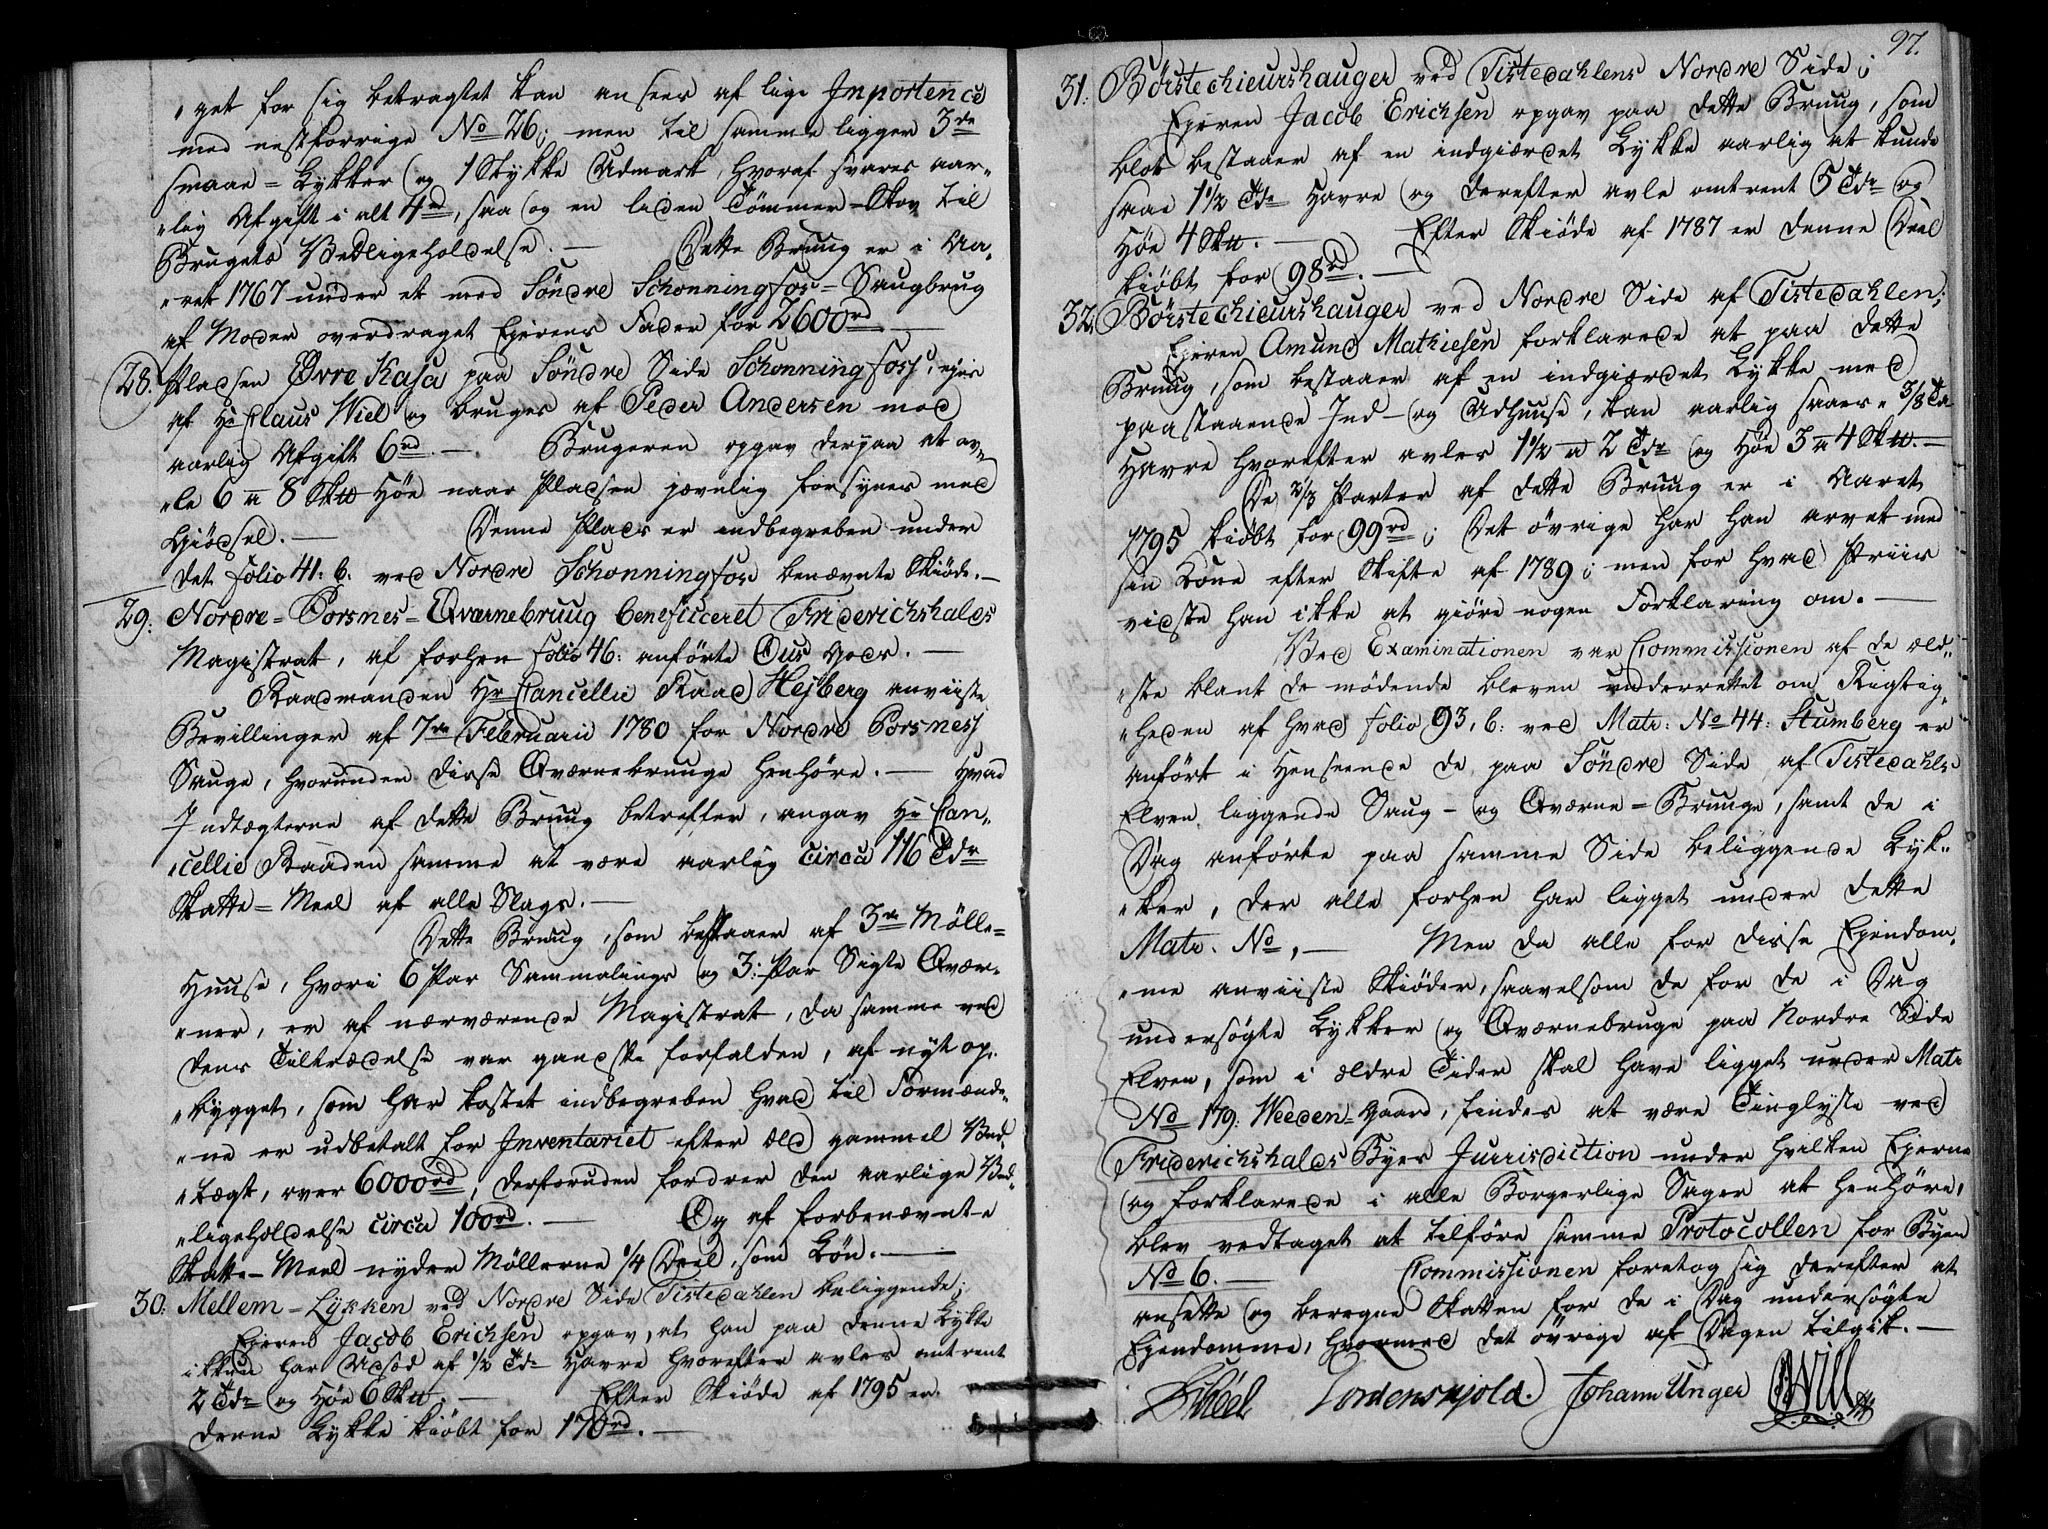 "get for sig betragtet kan ansees af lige Inportence
med nestforrige No 26; men til samme ligger 3de
smaae=Lykker og 1 Stykke Udmark, hvoraf svares aar-
"lig Afgift i alt 4rd, saa og en liden Tömmer-Skov til
Brugets Vedligeholdelse. — Dette Bruug er i Aa-
"ret 1767 under et med Söndre Schonningfos=Saugbrug
af Moder overdraget Ejerens Fader for 2600rd —
28. Pladsen Øvre Kasa paa Söndre Side Schonningfoss, ejes
af Hr Claus Wiel og bruges af Peder Andersen mod
aarlig Afgift 6rd —. Brugeren opgav derpaa at av-
"le 6 a 8 Sk℔ Höe naar Pladsen jævnlig forsynes med
Giödsel. — Denne Plads er indbegreben under
det folio 41: b. ved Nordre Schonningfos benævnte Skiöde. —
29: Nordre=Porsnes=Qværnebruug beneficeret Friderichshalds
Magistrat, af forhen folio 46: anförte Ous Gods. —
Raadmanden Hr Cancellie Raad Hejberg anviiste
Bevillinger af 7de Februarii 1780 for Nordre Porsness
Sauge, hvorunder disse Qværnebruuge henhöre. — Hvad
Indtægterne af dette Bruug betreffer, angav Hr Can-
"cellie Raaden samme at være aarlig circa 116 Tdr
Skatte=Meel af alle Slags. —
Dette Bruug, som bestaaer af 3de Mölle=
Huuse, hvori 6 Par Sammalings og 3: Par Sigte Qvær-
"ner, er af nærværende Magistrat, da samme ved
dens Tiltrædelse var gandske forfalden, af nyt op-
"bygget, som har kostet indbegreben hvad til Formænde-
"ne er udbetalt for Inventariet efter æld gammel Ved-
"tægt, over 6000rd, desforuden fordrer den aarlige Ved-
"ligeholdelse circa 100rd. — Og af forbenævnte
Skatte-Meel nyder Möllerne 1/4 Deel, som Lön. —
30: Mellem=Lykken ved Nordre Side Tistedahlen beliggende;
Ejeren Jacob Erichsen opgav, at han paa denne Lykke
ikkun har Udsæd af 1/2 Tde Havre hvorefter avles omtrent
2 Tdr og Höe 6 Sk℔. — Efter Skiöde af 1795 er
denne Lykke kiöbt for 170rd. —
97.
31: Börstechieurshauger ved Tistedahlens Nordre Side;
Ejeren Jacob Erichsen opgav paa dette Bruug, som
blot bestaaer af en indgiærdet Lykke aarlig at kunde
saae 1 1/2 Tde Havre og derefter avle omtrent 5 Tdr og
Höe 4 Sk℔. — Efter Skiöde af 1787 er denne Deel
kiöbt for 98rd. —
32. Börstechieurshauger ved Nordre Side af Tistedahlen;
Ejeren Amund Mathiesen forklarede at paa dette
Bruug, som bestaaer af en indgiærdet Lykke med
paastaaende Ind- og Udhuuse, kan aarlig saaes " 3/8 Td
Havre hvorefter avles 1 1/2 a 2 Tdr og Höe 3 a 4 Sk℔. —
De 2/3 Parter af dette Bruug er i Aaret
1795 kiöbt for 99rd; Det övrige har han arvet med
sin Kone efter Skifte af 1789; men for hvad Priis
vidste han ikke at giöre nogen Forklaring om. —
Ved Examinationen var Commissionen af de æld-
"ste blant de mödende bleven underrettet om Rigtig-
"heden af hvad folio 93, b: ved Matr: No 44: Stumberg er
anfört i Henseende de paa Söndre Side af Tistedahls
Elven liggende Saug- og Qværne=Bruuge, samt de i
Dag anförte paa samme Side beliggende Lyk-
"ker, der alle forhen har ligget under dette
Matr. No, — Men da alle for disse Ejendom-
"me anviiste Skiöder, saavelsom de for de i Dag
undersögte Lykker og Qværnebruge paa Nordre Side
Elven, som i ældre Tider skal have ligget under Matr
No 179: Weeden=Gaard, findes at være Tinglyste ved
Friderichshalds Byes Jurisdiction under hvilken Ejerne
og forklarede i alle Borgerlige Sager at henhöre,
blev vedtaget at tilföre samme Protocollen for Byen
No 6. — Commissionen foretog sig derefter at
ansette og beregne Skatten for de i Dag undersögte
Ejendomme, hvormed det övrige af Dagen tilgik. —
Tordenskjold. Johann Unger